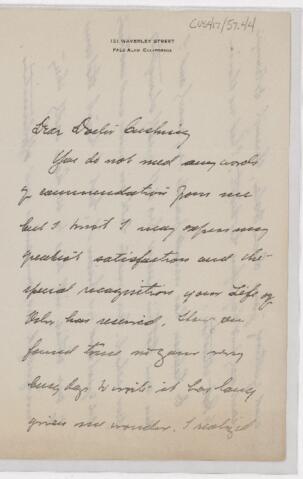 CUSH17/57.44
151 WAVERLEY STREET
PALO ALTO CALIFORNIA
Dear Doctor Cushing
You do not need any words
of commendation from me
but I trust I may express my
greatest satisfaction and the
special recognition your Life of
Osler has received. How you
found time in your very
busy days to write it has long
given me wonder. I realized